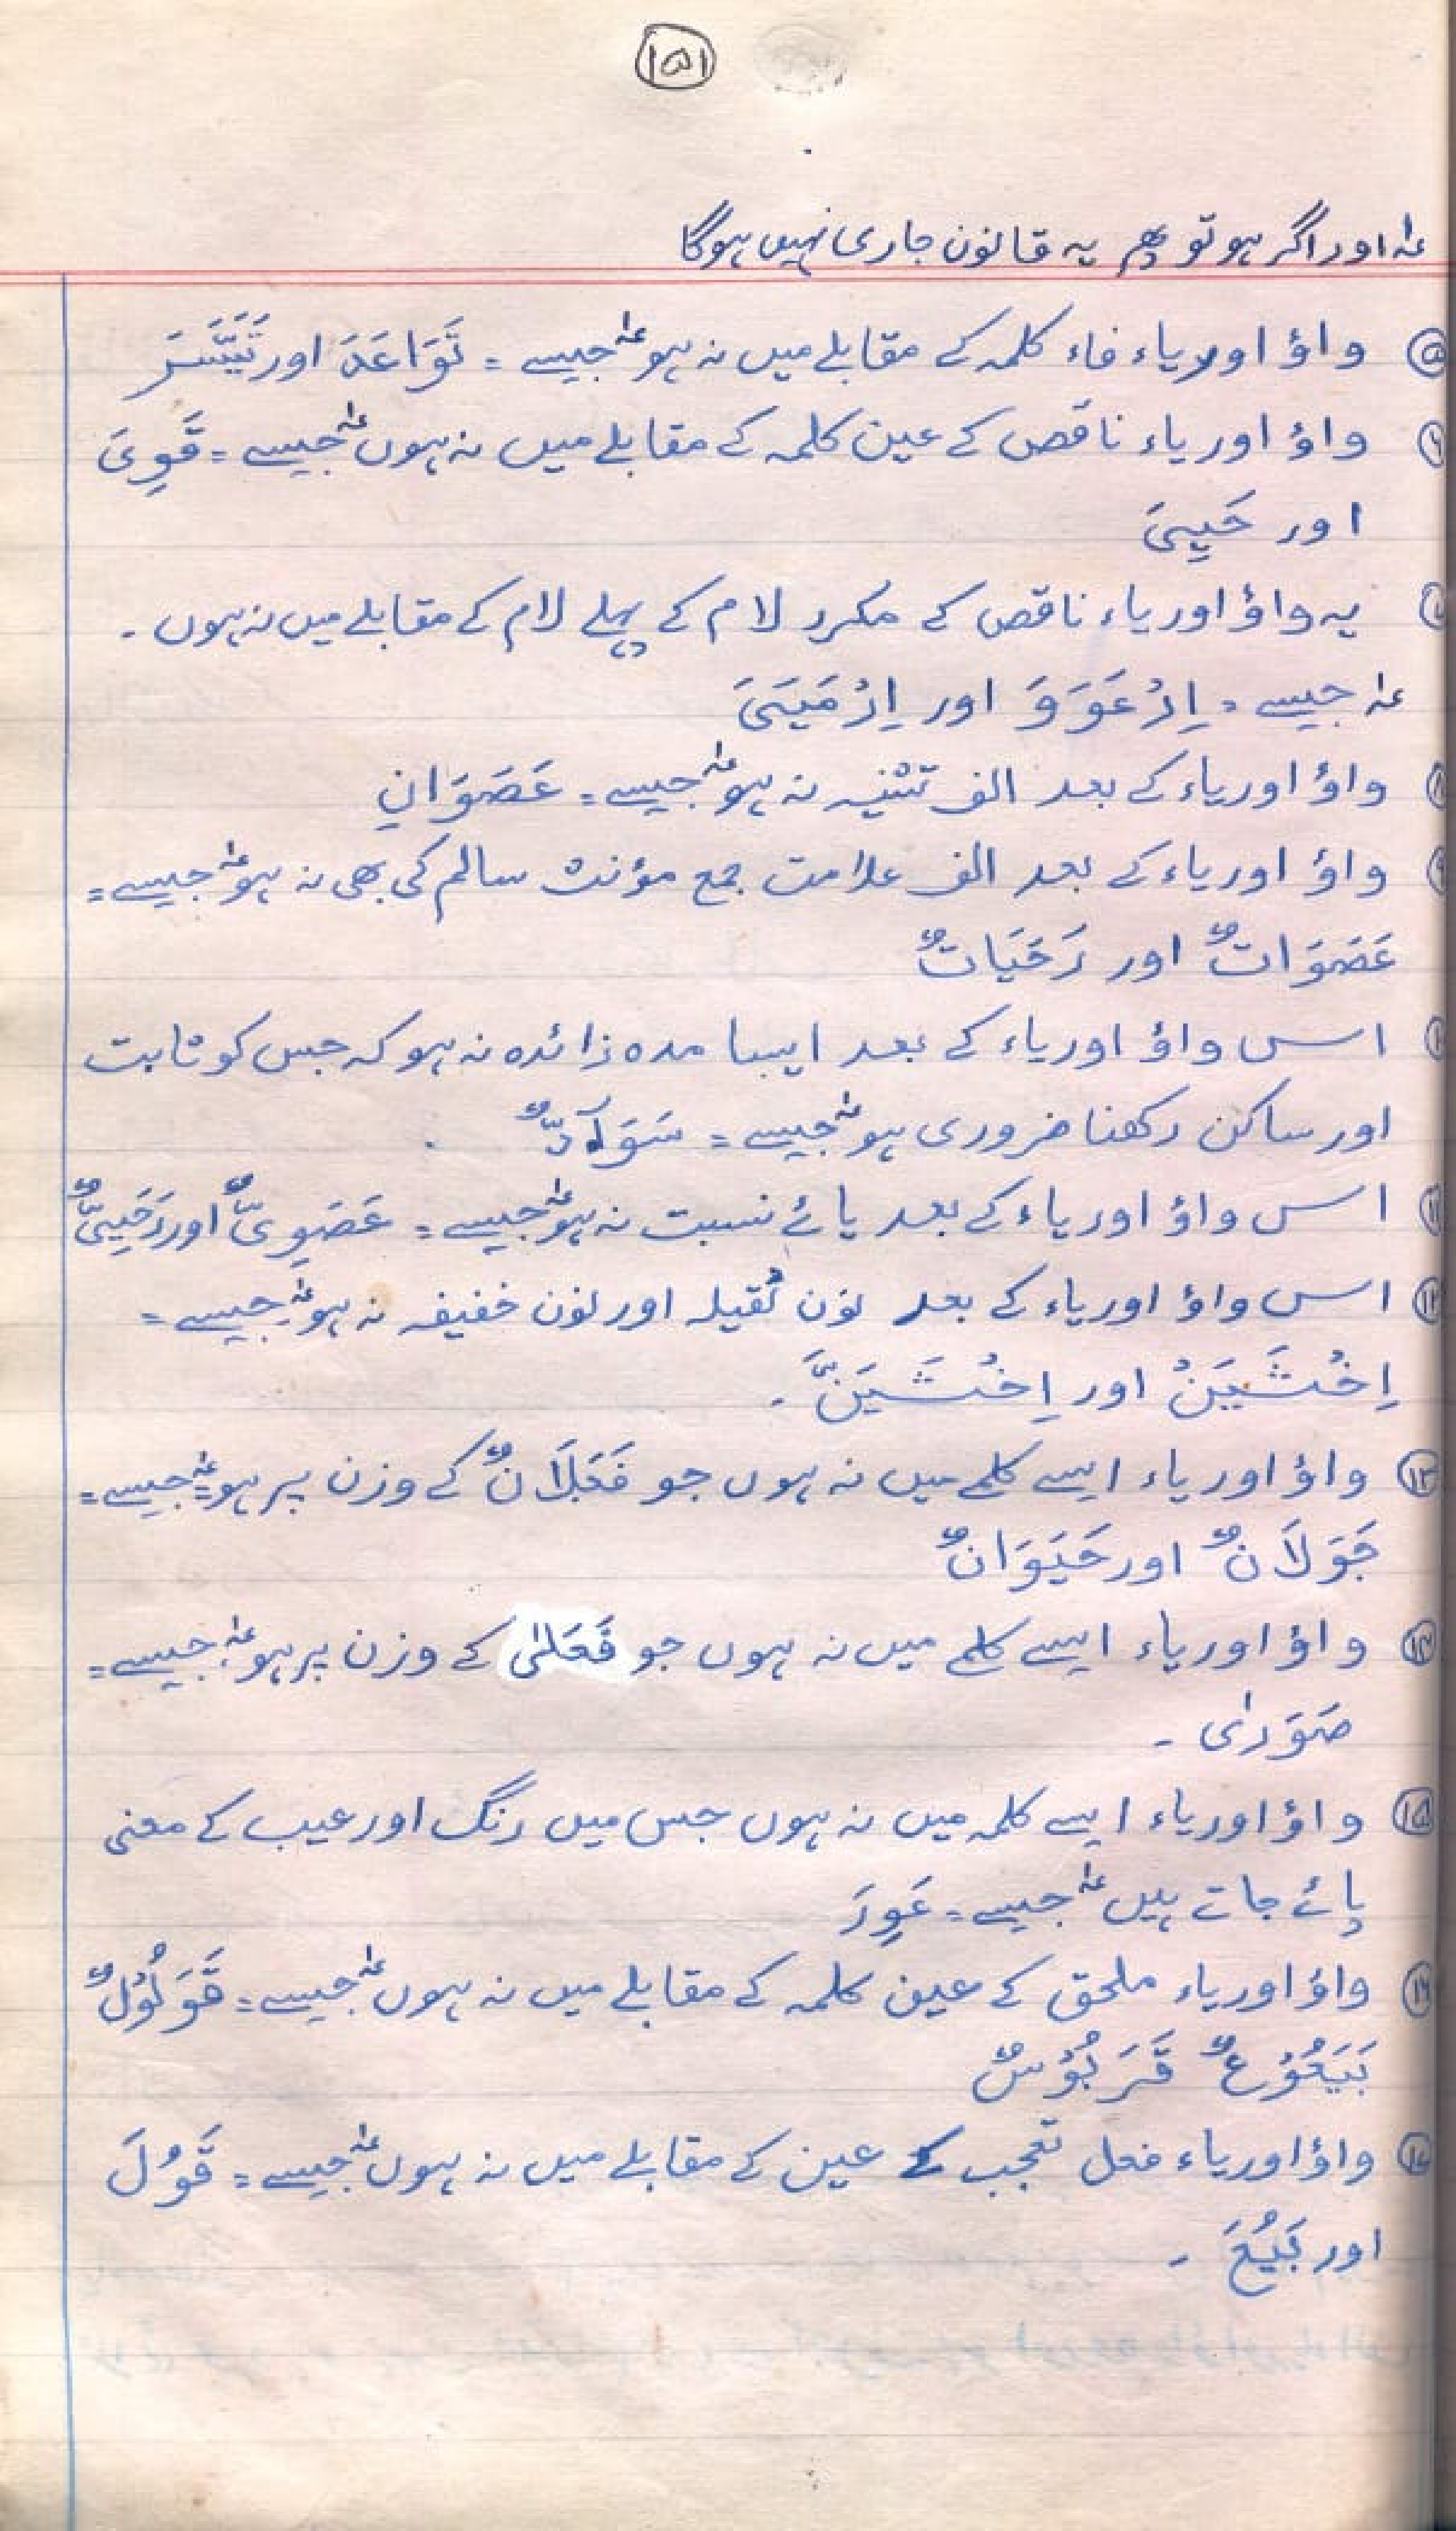 ۱۵۱
عہ اور اگر ہو تو پھر یہ قانون جاری نہیں ہوگا
۵ واؤ اور یاء فاء کلمہ کے مقابلے میں نہ ہو عہ جیسے = تَوَاعَدَ اور تَیَسَّرَ
۶ واؤ اور یاء ناقص کے عین کلمہ کے مقابلے میں نہ ہوں عہ جیسے = قَوِیَ
اور حَیِیَ
۷ یہ واؤ اور یاء ناقص کے مکرر لام کے پہلے لام کے مقابلے میں نہ ہوں ۔
عہ جیسے = اِرْعَوَوَ اور اِرْمَیَیَ
۸ واؤ اور یاء کے بعد الف تثنیہ نہ ہو عہ جیسے = عَصَوَانِ
۹ واؤ اور یاء کے بعد الف علامت جمع مؤنث سالم کی بھی نہ ہو عہ جیسے =
عَصَوَاتٌ اور رَحَیَاتٌ
۱۰ اس واؤ اور یاء کے بعد ایسا مدہ زائدہ نہ ہو کہ جس کو ثابت
اور ساکن رکھنا ضروری ہو عہ جیسے = سَوَادٌ
۱۱ اس واؤ اور یاء کے بعد یائے نسبت نہ ہو عہ جیسے = عَصَوِیٌّ اور رَحَیِیٌّ
۱۲ اس واؤ اور یاء کے بعد نون ثقیلہ اور نون خفیفہ نہ ہو عہ جیسے =
اِخْشَیَنْ اور اِخْشَیَنَّ ۔
۱۳ واؤ اور یاء ایسے کلمے میں نہ ہوں جو فَعَلَانٌ کے وزن پر ہو عہ جیسے =
جَوَلَانٌ اور حَیَوَانٌ
۱۴ واؤ اور یاء ایسے کلمے میں نہ ہوں جو فَعَلٰی کے وزن پر ہو عہ جیسے =
صَوَرٰی ۔
۱۵ واؤ اور یاء ایسے کلمہ میں نہ ہوں جس میں رنگ اور عیب کے معنی
پائے جاتے ہیں عہ جیسے = عَوِرَ
۱۶ واؤ اور یاء ملحق کے عین کلمہ کے مقابلے میں نہ ہوں عہ جیسے = قَوَلُوْلٌ
بَیَعُوْعٌ قَرَبُوْسٌ
۱۷ واؤ اور یاء فعل تعجب کے عین کے مقابلے میں نہ ہوں عہ جیسے = قَوُلَ
اور بَیُعَ ۔